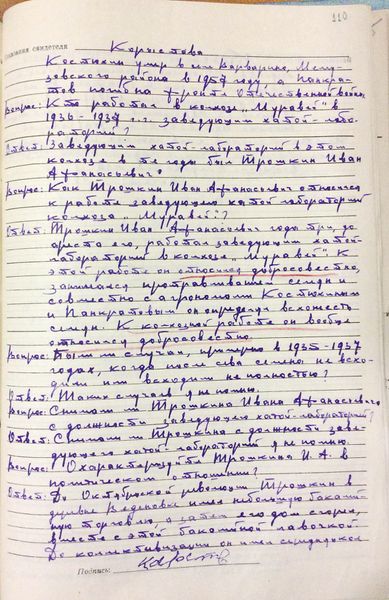 110
Показания свидетеля
Корыстова
Костюхин умер в с. Варварино, Мелу-
зовского района в 1957 году, а Панкра-
тов погиб на фронте Отечественной войны
Вопрос: Кто работал в колхозе „Муравей" в
1936-1937 г.г. заведующим хатой-лабо-
раторией?
Ответ: Заведующим хатой-лабораторией в этом
колхозе в те годы был Трошкин Иван
Афанасьевич.
Вопрос: Как Трошкин Иван Афанасьевич относился
к работе заведующего хатой лабораторией
колхоза „Муравей"?
Ответ: Трошкин Иван Афанасьевич годы три, до
ареста его, работал заведующим хатой-
лабораторией в колхозе „Муравей". К
этой работе он относился добросовестно,
занимался протравливанием семян и
совместно с агрономом Костюхиным
и Панкратовым он определял всхожесть
семян. К колхозной работе он вообще
относился добросовестно.
Вопрос: Были ли случаи, примерно в 1935-1937
годах, когда после сева семена не всхо-
дили или всходили не полностью?
Ответ: Таких случаев я не помню.
Вопрос: Снимали ли Трошкина Ивана Афанасьевича
с должности заведующего хатой-лабораторией?
Ответ: Снимали ли Трошкина с должности заве-
дующего хатой-лабораторией я не помню.
Вопрос: Охарактеризуйте Трошкина И. А. в
политическом отношении?
Ответ: До Октябрьской революции Трошкин в
деревне имел небольшую бакалей-
ную торговлю, а затем его дом сгорел,
вместе с этой бакалейной лавочкой.
До коллективизации он имел середняцкое
Подпись: